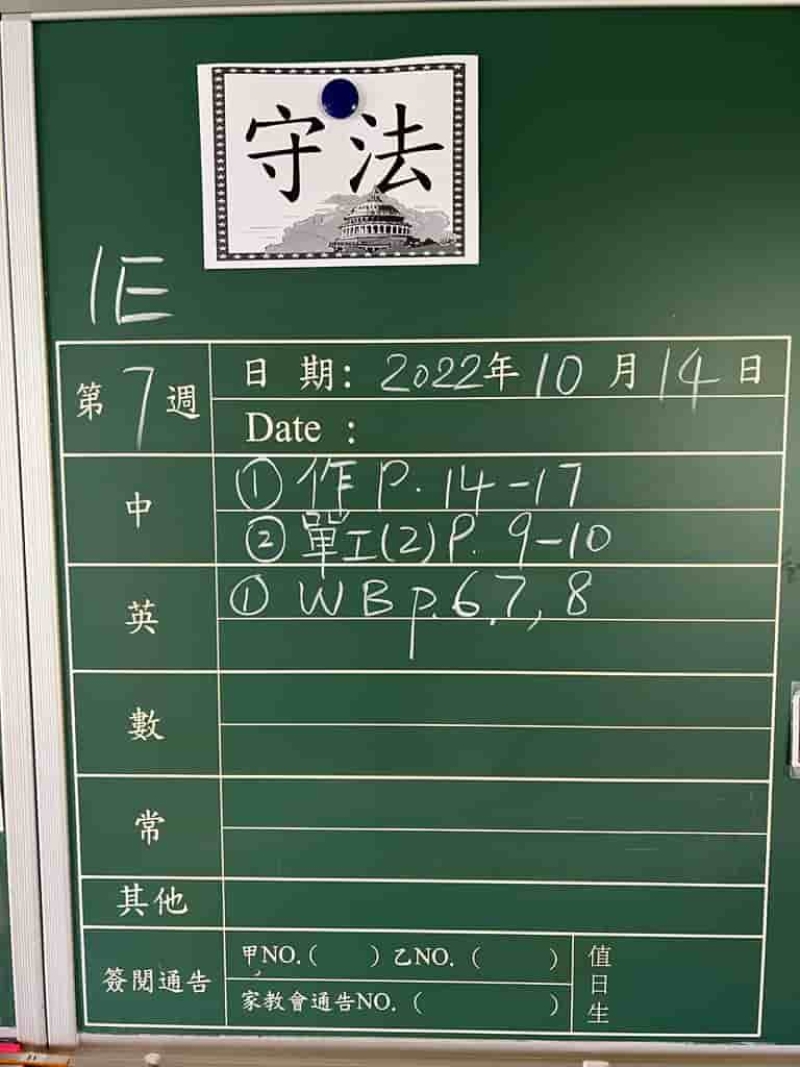 守法
1E
第7週
日期：2022年10月14日
Date：
中
①作 P. 14-17
②單工(2) P. 9-10
英
① WB p.6.7, 8
數
常
其他
簽閱通告
甲NO.（　　）乙NO.（　　）
家教會通告NO.（　　）
值日生